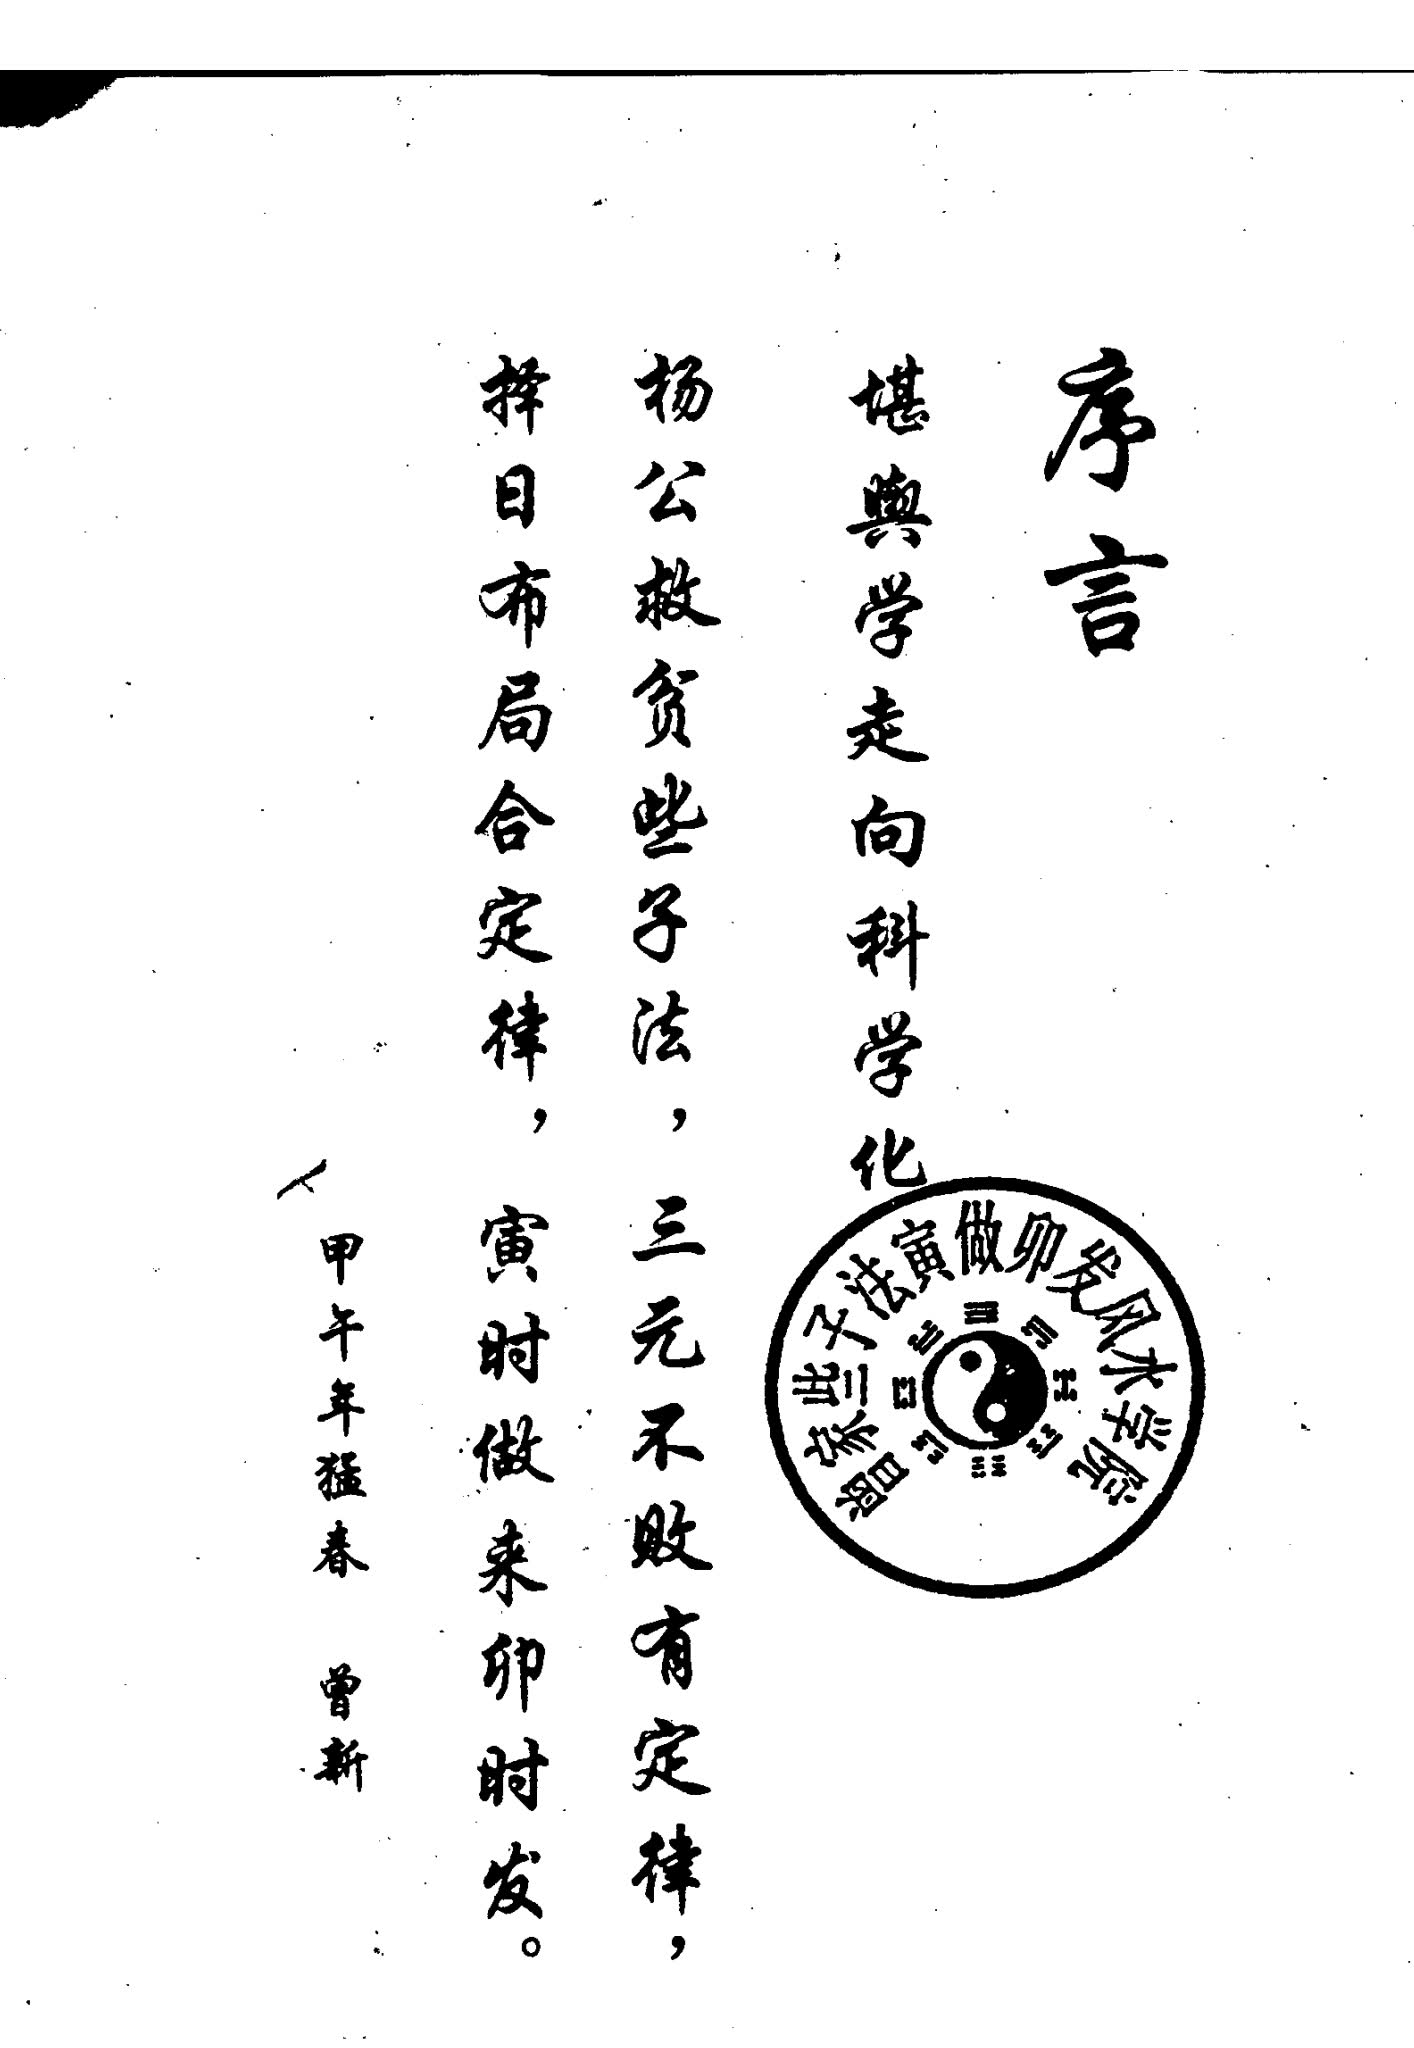 序言
堪舆学走向科学化
杨公救贫些子法，三元不败有定律，
择日布局合定律，寅时做来卯时发。
甲午年猛春 曾新
曾家些子法寅做卯发风水学院